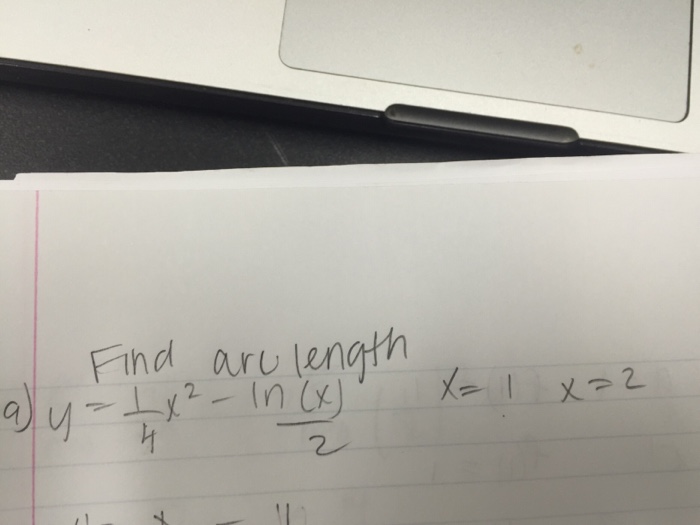 Find arc length
a) y = 1/4 x² - ln(x)/2 x = 1 x = 2